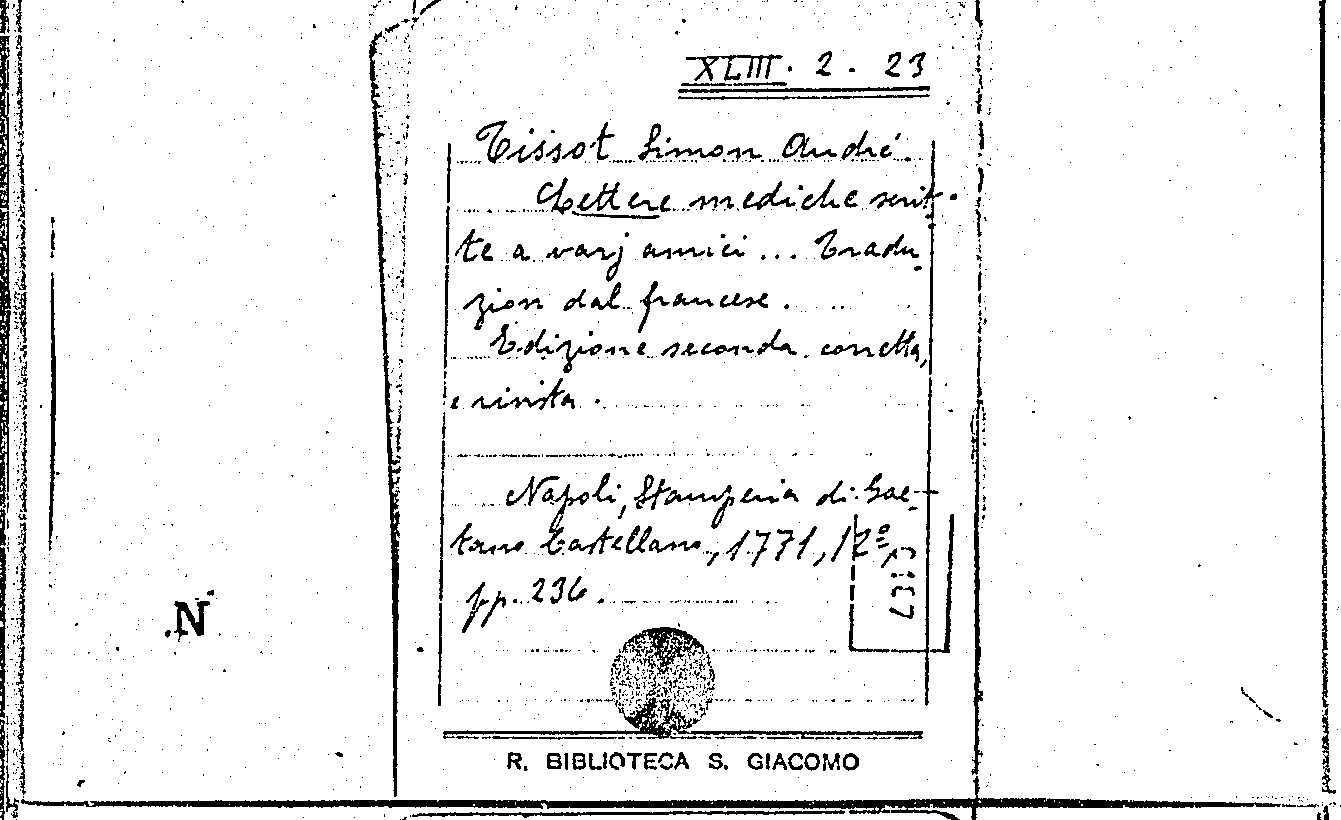 XLIII. 2. 23
Tissot Simon André.
Lettere mediche scrit-
te a varj amici ... Tradu-
zion dal francese.
Edizione seconda corretta,
e rivista.
Napoli, Stamperia di Gae-
tano Castellano, 1771, 12º,
pp. 236.
N
R. BIBLIOTECA S. GIACOMO